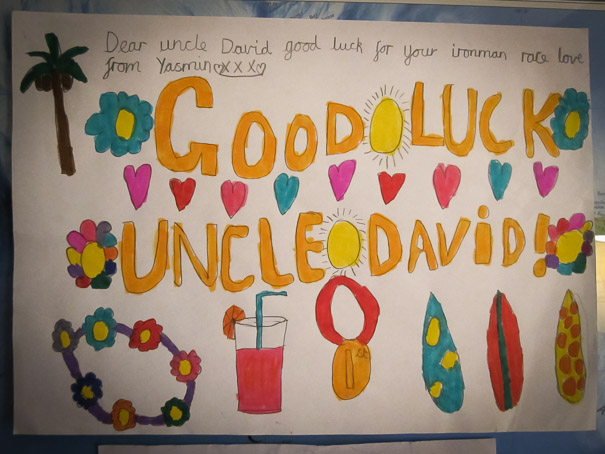 Dear uncle David good luck for your ironman race love
from Yasmin♡xxx♡
GOOD LUCK
UNCLE DAVID!
1st